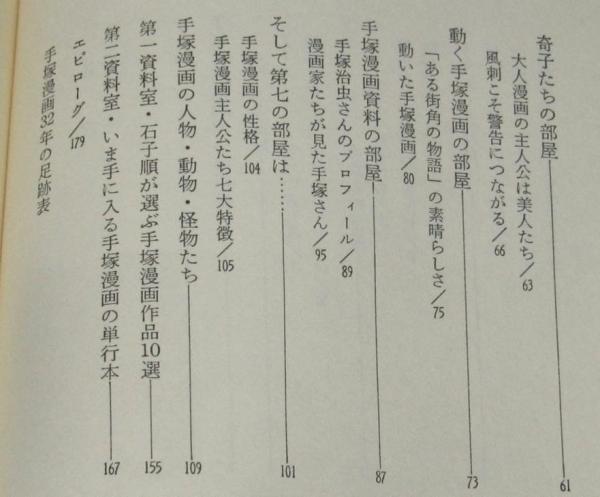 奇子たちの部屋――61
大人漫画の主人公は美人たち/63
風刺こそ警告につながる/66
動く手塚漫画の部屋――73
「ある街角の物語」の素晴らしさ/75
動いた手塚漫画/80
手塚漫画資料の部屋――87
手塚治虫さんのプロフィール/89
漫画家たちが見た手塚さん/95
そして第七の部屋は……――101
手塚漫画の性格/104
手塚漫画主人公たち七大特徴/105
手塚漫画の人物・動物・怪物たち――109
第一資料室・石子順が選ぶ手塚漫画作品10選――155
第二資料室・いま手に入る手塚漫画の単行本――167
エピローグ/179
手塚漫画32年の足跡表